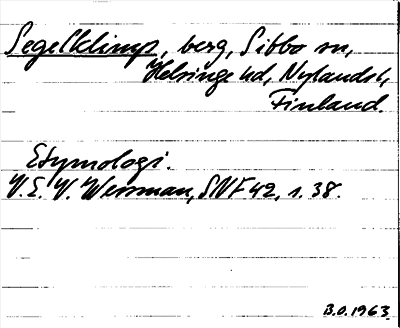 Segelklimp, berg, Sibbo sn,
Helsinge hd, Nylands l,
Finland.
Etymologi.
V.E.V. Wessman, SNF 42, s. 38.
B.O. 1963